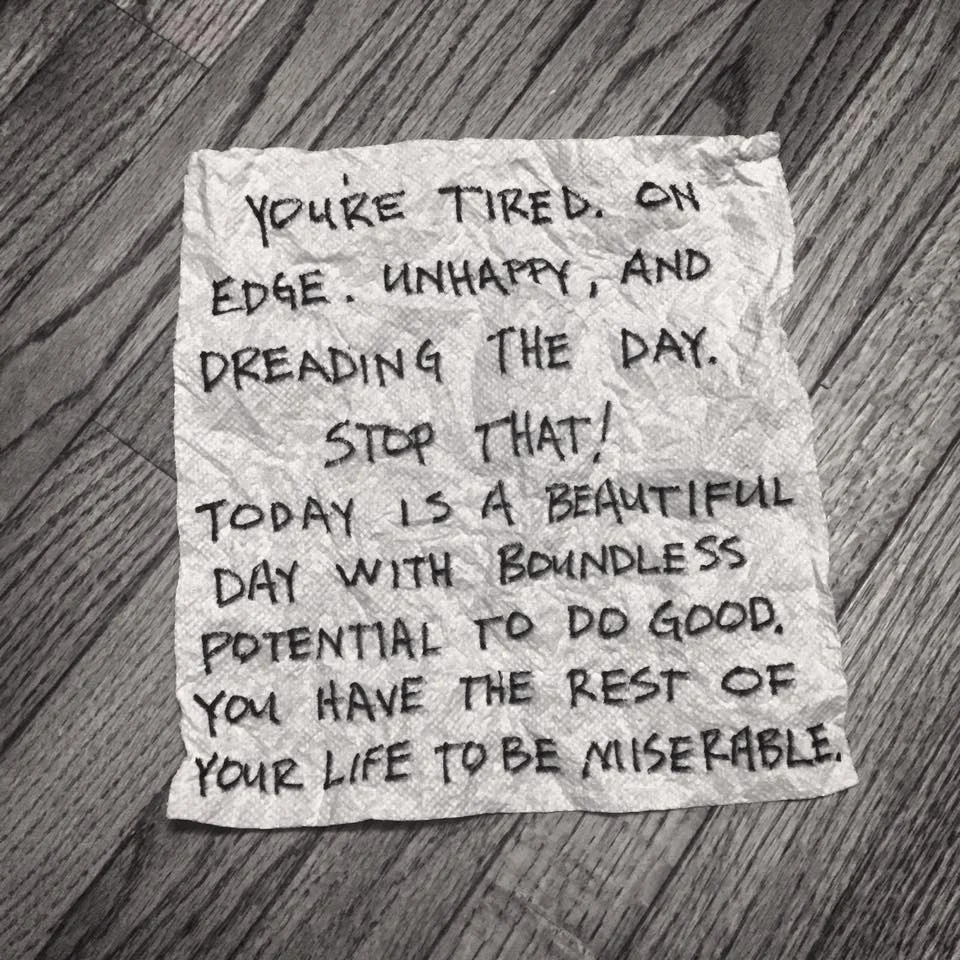 YOU'RE TIRED. ON
EDGE. UNHAPPY, AND
DREADING THE DAY.
STOP THAT!
TODAY IS A BEAUTIFUL
DAY WITH BOUNDLESS
POTENTIAL TO DO GOOD.
YOU HAVE THE REST OF
YOUR LIFE TO BE MISERABLE.